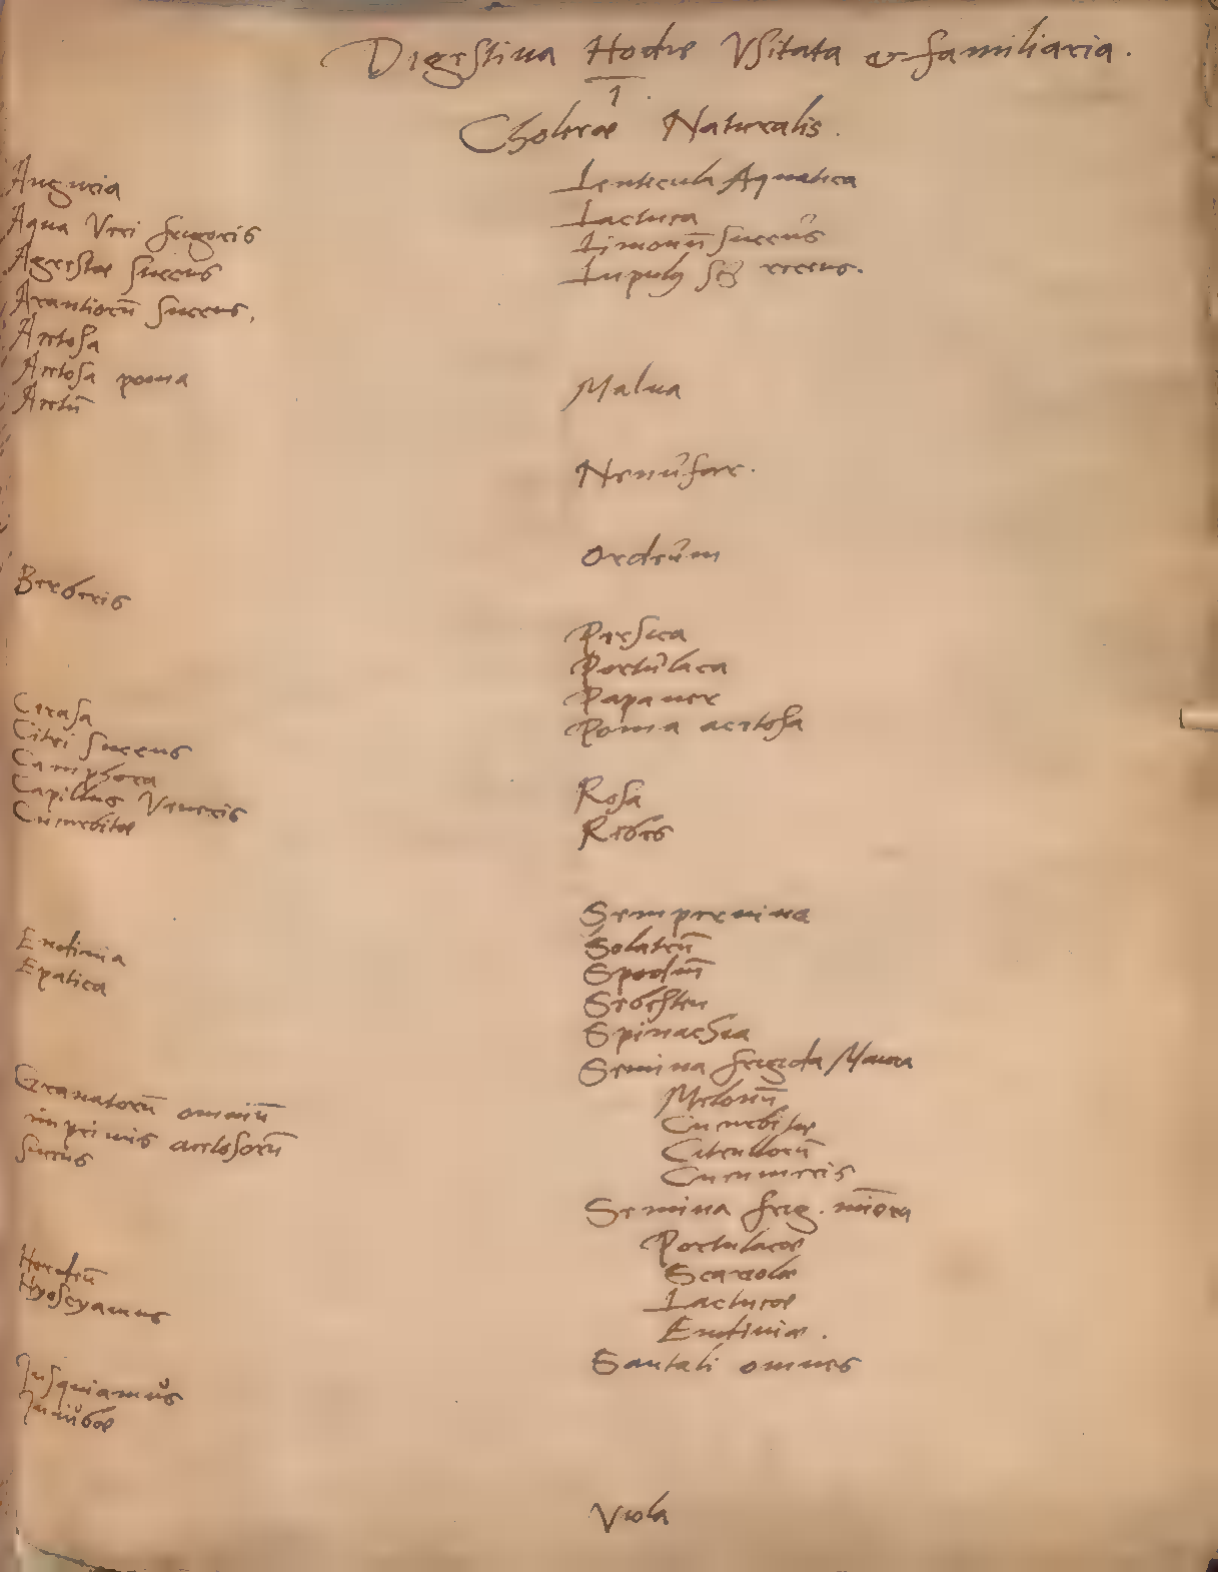 Digestiua Hodie Vsitata & familiaria.
1.
Cholerae Naturalis.
Anguria
Aqua Veri frigoris
Agrestae succus
Arantiorū succus,
Acetosa
Acetosa poma
Acetū
Berberis
Cerasa
Citri succus
Camphora
Capillus Veneris
Cucurbitae
Endiuia
Epatica
Granatorū omniū
inprimis acetosorū
succus
Hordeū
Hyoscyamus
Jusquiamus
Juiubae
Lenticula Aquatica
Lactuca
Limonū succus
Lupulus recens.
Malua
Nenufar.
Ordeum
Persica
Portulaca
Papauer
Poma acetosa
Rosa
Ribes
Semperuiua
Solatrū
Spodiū
Sebesten
Spinachia
Semina frigida Maiora
Melonū
Cucurbitae
Citrullorū
Cucumeris
Semina frig. miōra
Portulacae
Scariolae
Lactucae
Endiuiae.
Santali omnes
Viola